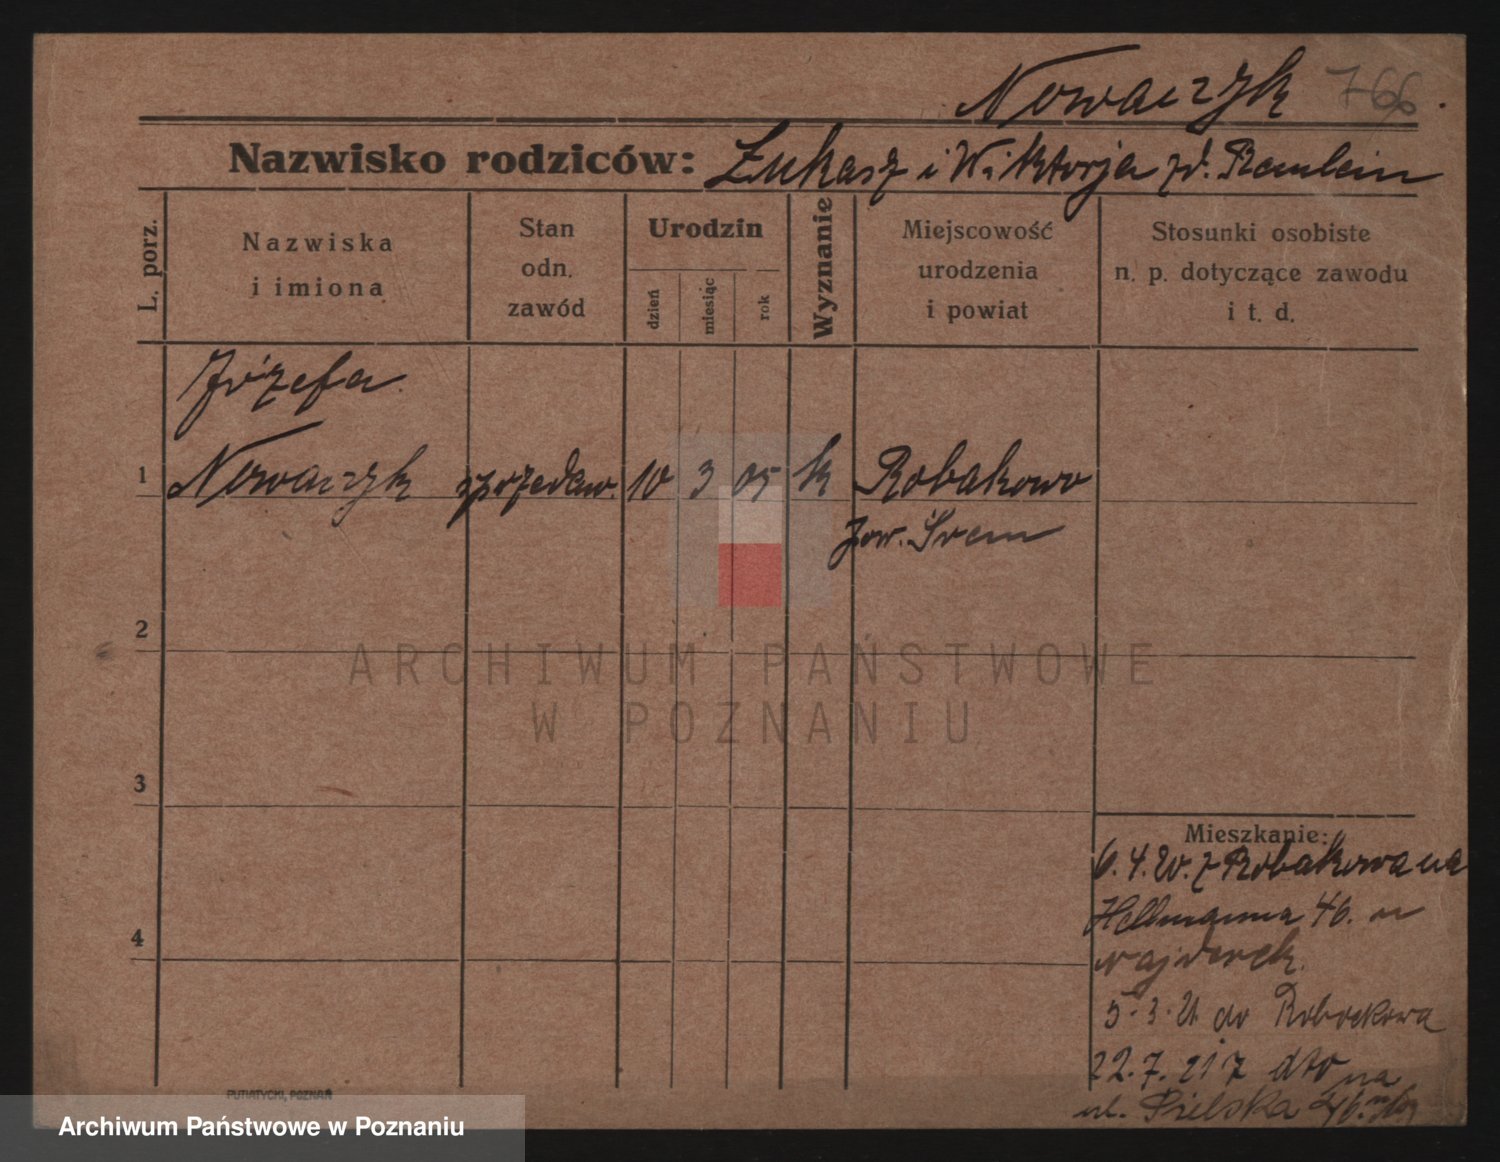 Nowaczyk 766
Nazwisko rodziców: Łukasz i Wiktorja zd.
L. porz.
Nazwiska
i imiona
Stan
odn.
zawód
Urodzin
dzień
miesiąc
rok
Wyznanie
Miejscowość
urodzenia
i powiat
Stosunki osobiste
n. p. dotyczące zawodu
i t. d.
Józefa
1 Nowaczyk sprzedaw. 10 3 05 k Robakowo
pow. Śrem
2
ARCHIWUM PAŃSTWOWE
W POZNANIU
3
Mieszkanie:
6.4.20. z Robakowa na
Hellmanna 46. u
4
5.3.21 do Robakowa
22.7.21 z dto na
ul. 46.
PUTIATYCKI, POZNAŃ
Archiwum Państwowe w Poznaniu